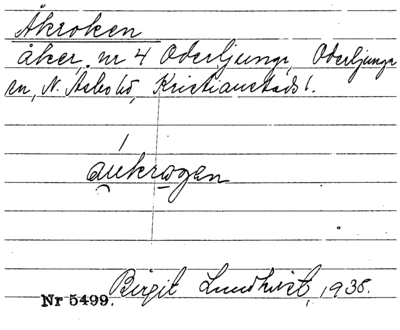 Åkroken
åker, nr 4 Oderljunga, Oderljunga
sn, N. Åsbo hd, Kristianstads l.
aukrogen
Nr 5499. Birgit Lundkvist, 1935.